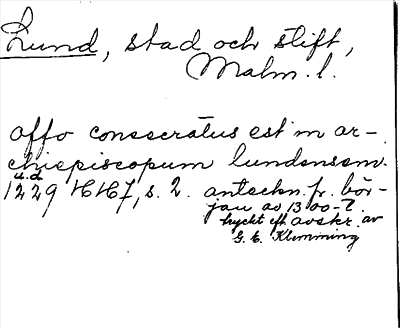 Lund, stad och stift,
Malm. l.
Offo consecratus est in ar-
chiepiscopum lundensem.
u.d.
1229 HH7, s. 2. anteckn. fr. bör-
jan av 1300-t.
tryckt eft. avskr. av
G. E. Klemming